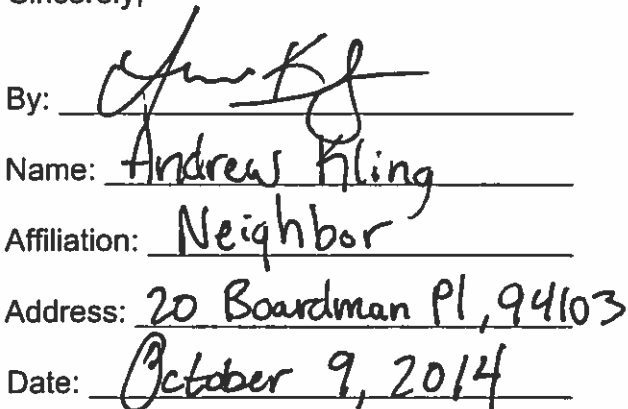 Sincerely,
By:
Name: Andrew Kling
Affiliation: Neighbor
Address: 20 Boardman Pl, 94103
Date: October 9, 2014